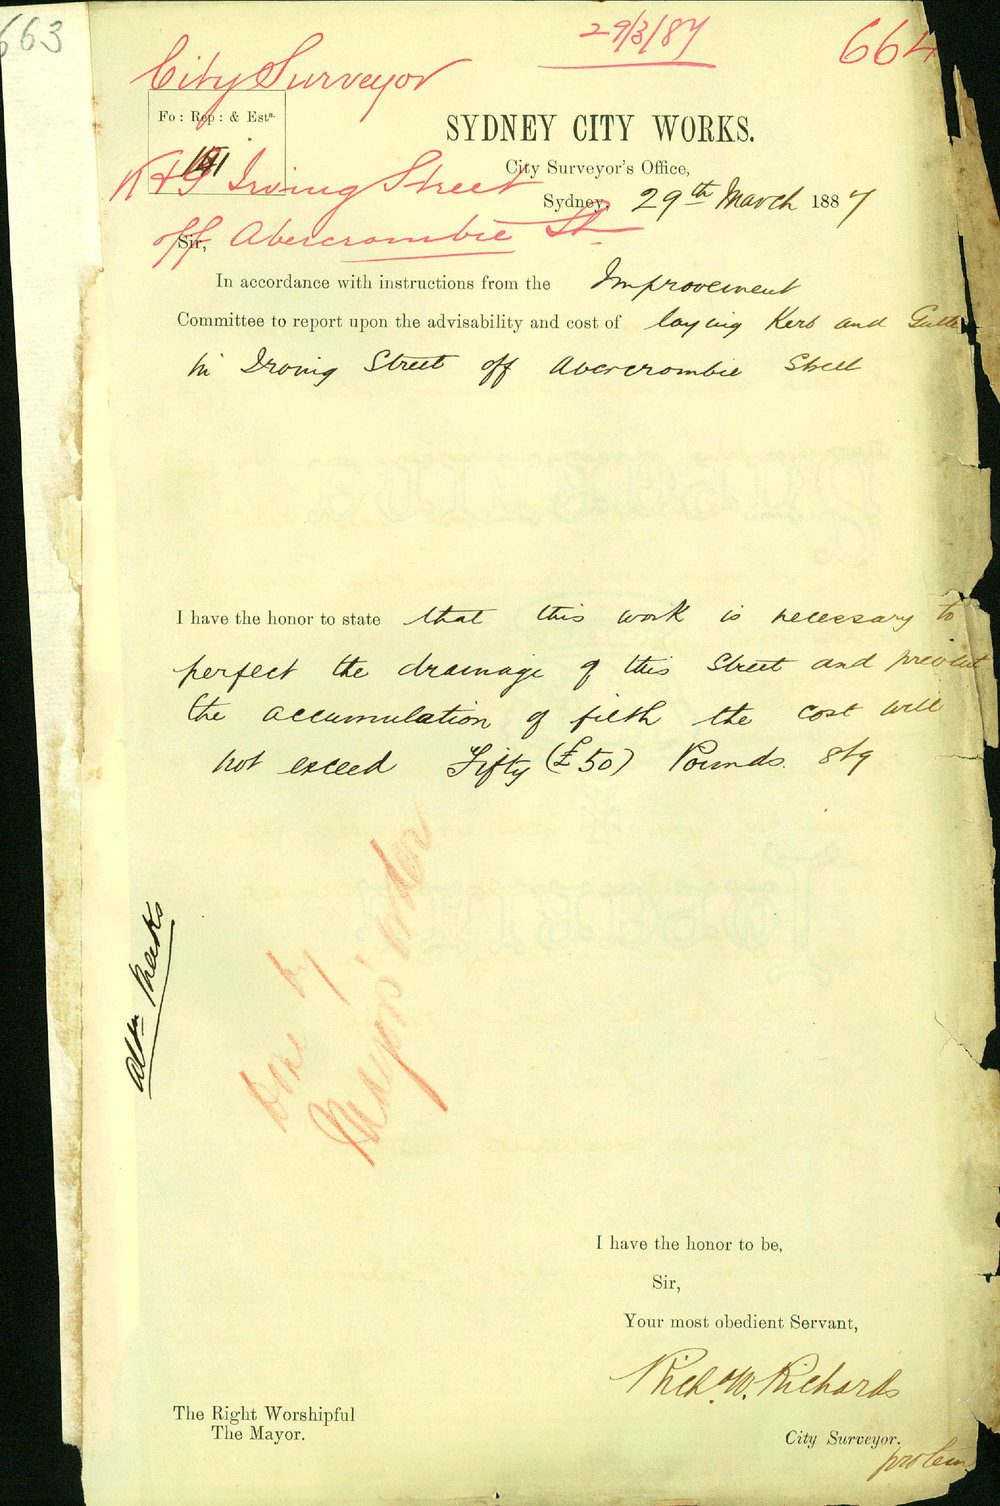 663
29/3/87
664
City Surveyor
Fo: Rep: & Ests.
141
SYDNEY CITY WORKS.
City Surveyor's Office,
K & G Irving Street
Sydney, 29th March 1887
off Abercrombie St
Sir,
In accordance with instructions from the Improvement
Committee to report upon the advisability and cost of laying Kerb and Gutter
in Irving Street off Abercrombie Street
I have the honor to state that this work is necessary to
perfect the drainage of this Street and prevent
the accumulation of filth the cost will
not exceed Fifty (£50) Pounds Stg
Done by
Mayor's order
Aldn Meeks
I have the honor to be,
Sir,
Your most obedient Servant,
Richd. W. Richards
The Right Worshipful
The Mayor.
City Surveyor.
pro tem